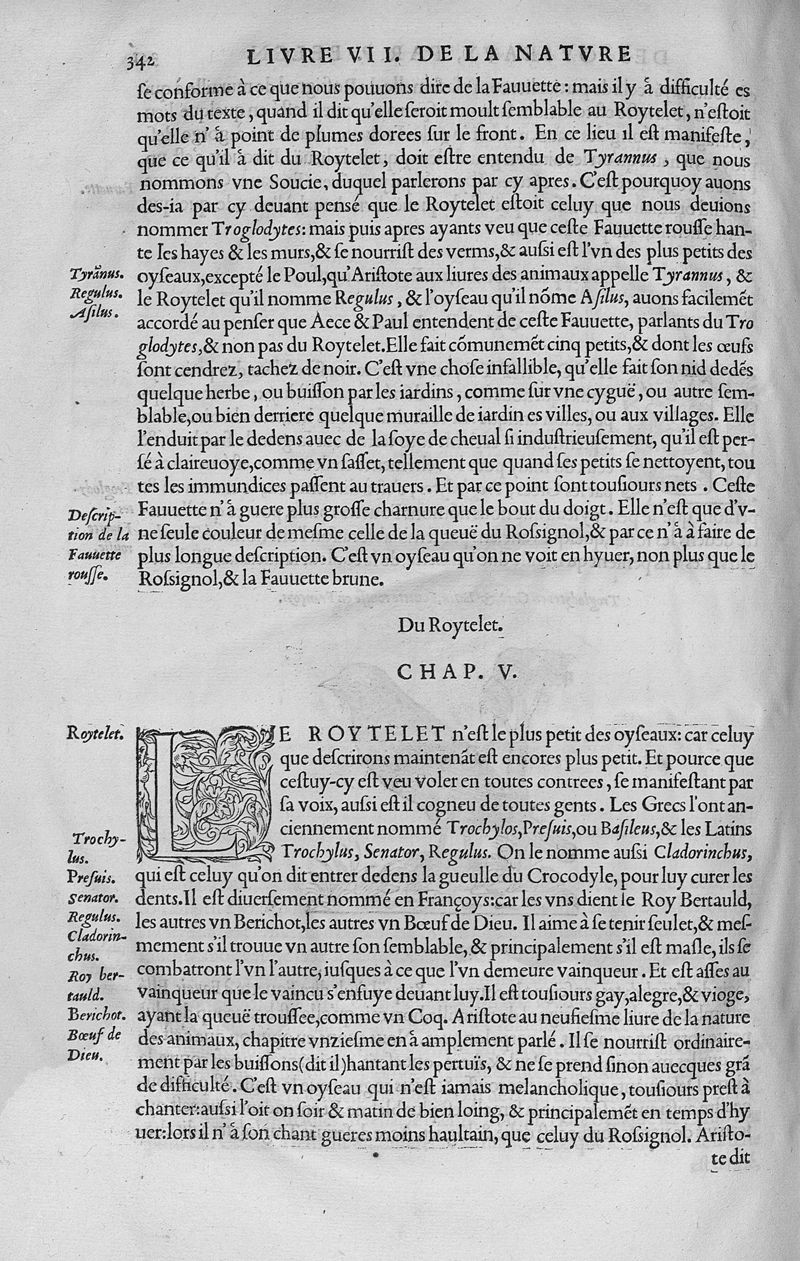 342 LIVRE VII. DE LA NATVRE
ſe conforme à ce que nous pouuons dire de la Fauuette : mais il y å difficulté es
mots du texte, quand il dit qu'elle ſeroit moult ſemblable au Roytelet, n'eſtoit
qu'elle n' å point de plumes dorees ſur le front. En ce lieu il eſt manifeſte,
que ce qu'il å dit du Roytelet, doit eſtre entendu de Tyrannus, que nous
nommons vne Soucie, duquel parlerons par cy apres. C'eſt pourquoy auons
des-ia par cy deuant penſé que le Roytelet eſtoit celuy que nous deuions
nommer Troglodytes: mais puis apres ayants veu que ceſte Fauuette rouſſe han-
te les hayes & les murs, & ſe nourriſt des verms, & auſsi eſt l'vn des plus petits des
Tyrãnus.
Regulus.
Aſilus.
oyſeaux, excepté le Poul, qu'Ariſtote aux liures des animaux appelle Tyrannus, &
le Roytelet qu'il nomme Regulus, & l'oyſeau qu'il nõme Aſilus, auons facilemẽt
accordé au penſer que Aece & Paul entendent de ceſte Fauuette, parlants du Tro
glodytes, & non pas du Roytelet. Elle fait cõmunemẽt cinq petits, & dont les œufs
ſont cendrez, tachez de noir. C'eſt vne choſe infallible, qu'elle fait ſon nid dedẽs
quelque herbe, ou buiſſon par les iardins, comme ſur vne cyguë, ou autre ſem-
blable, ou bien derriere quelque muraille de iardin es villes, ou aux villages. Elle
l'enduit par le dedens auec de la ſoye de cheual ſi induſtrieuſement, qu'il eſt per-
ſé à claireuoye, comme vn ſaſſet, tellement que quand ſes petits ſe nettoyent, tou
tes les immundices paſſent au trauers. Et par ce point ſont touſiours nets. Ceſte
Deſcrip-
tion de la
Fauuette
rouſſe.
Fauuette n'å guere plus groſſe charnure que le bout du doigt. Elle n'eſt que d'v-
ne ſeule couleur de meſme celle de la queuë du Roſsignol, & par ce n'å à faire de
plus longue deſcription. C'eſt vn oyſeau qu'on ne voit en hyuer, non plus que le
Roſsignol, & la Fauuette brune.
Du Roytelet.
CHAP. V.
Roytelet.
LE ROYTELET n'eſt le plus petit des oyſeaux: car celuy
que deſcrirons maintenãt eſt encores plus petit. Et pource que
ceſtuy-cy eſt veu voler en toutes contrees, ſe manifeſtant par
ſa voix, auſsi eſt il cogneu de toutes gents. Les Grecs l'ont an-
ciennement nommé Trochylos, Preſuis, ou Baſileus, & les Latins
Trochylus, Senator, Regulus. On le nomme auſsi Cladorinchus,
Trochy-
lus.
Preſuis.
Senator.
Regulus.
Cladorin-
chus.
Roy ber-
tauld.
Berichot.
Bœuf de
Dieu.
qui eſt celuy qu'on dit entrer dedens la gueulle du Crocodyle, pour luy curer les
dents. Il eſt diuerſement nommé en Françoys: car les vns dient le Roy Bertauld,
les autres vn Berichot, les autres vn Bœuf de Dieu. Il aime à ſe tenir ſeulet, & meſ-
mement s'il trouue vn autre ſon ſemblable, & principalement s'il eſt maſle, ils ſe
combatront l'vn l'autre, iuſques à ce que l'vn demeure vainqueur. Et eſt aſſes au
vainqueur que le vaincu s'enfuye deuant luy. Il eſt touſiours gay, alegre, & vioge,
ayant la queuë trouſſee, comme vn Coq. Ariſtote au neufieſme liure de la nature
des animaux, chapitre vnzieſme en å amplement parlé. Il ſe nourriſt ordinaire-
ment par les buiſſons (dit il) hantant les pertuïs, & ne ſe prend ſinon auecques grã
de difficulté. C'eſt vn oyſeau qui n'eſt iamais melancholique, touſiours preſt à
chanter: auſsi l'oit on ſoir & matin de bien loing, & principalemẽt en temps d'hy
uer: lors il n' å ſon chant gueres moins haultain, que celuy du Roſsignol. Ariſto-
te dit